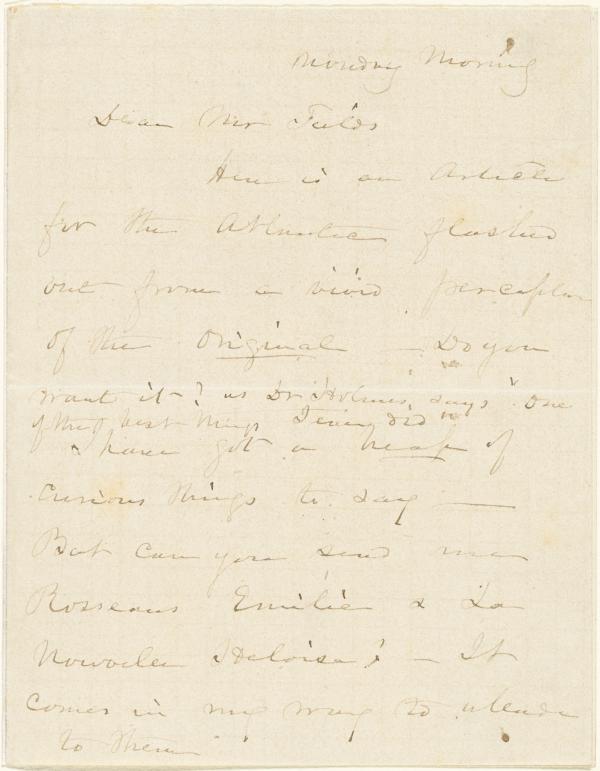 Monday Morning
Dear Mr Fields
Here is an Article
for the Atlantic flashed
out from a vivid perception
of the Original — Do you
want it? as Dr Holmes says "one
of the best things I ever did"
I have got a heap of
curious things to say —
But can you send me
Rosseaus Emilie & La
Nouvelle Heloise? — It
comes in my way to
to them